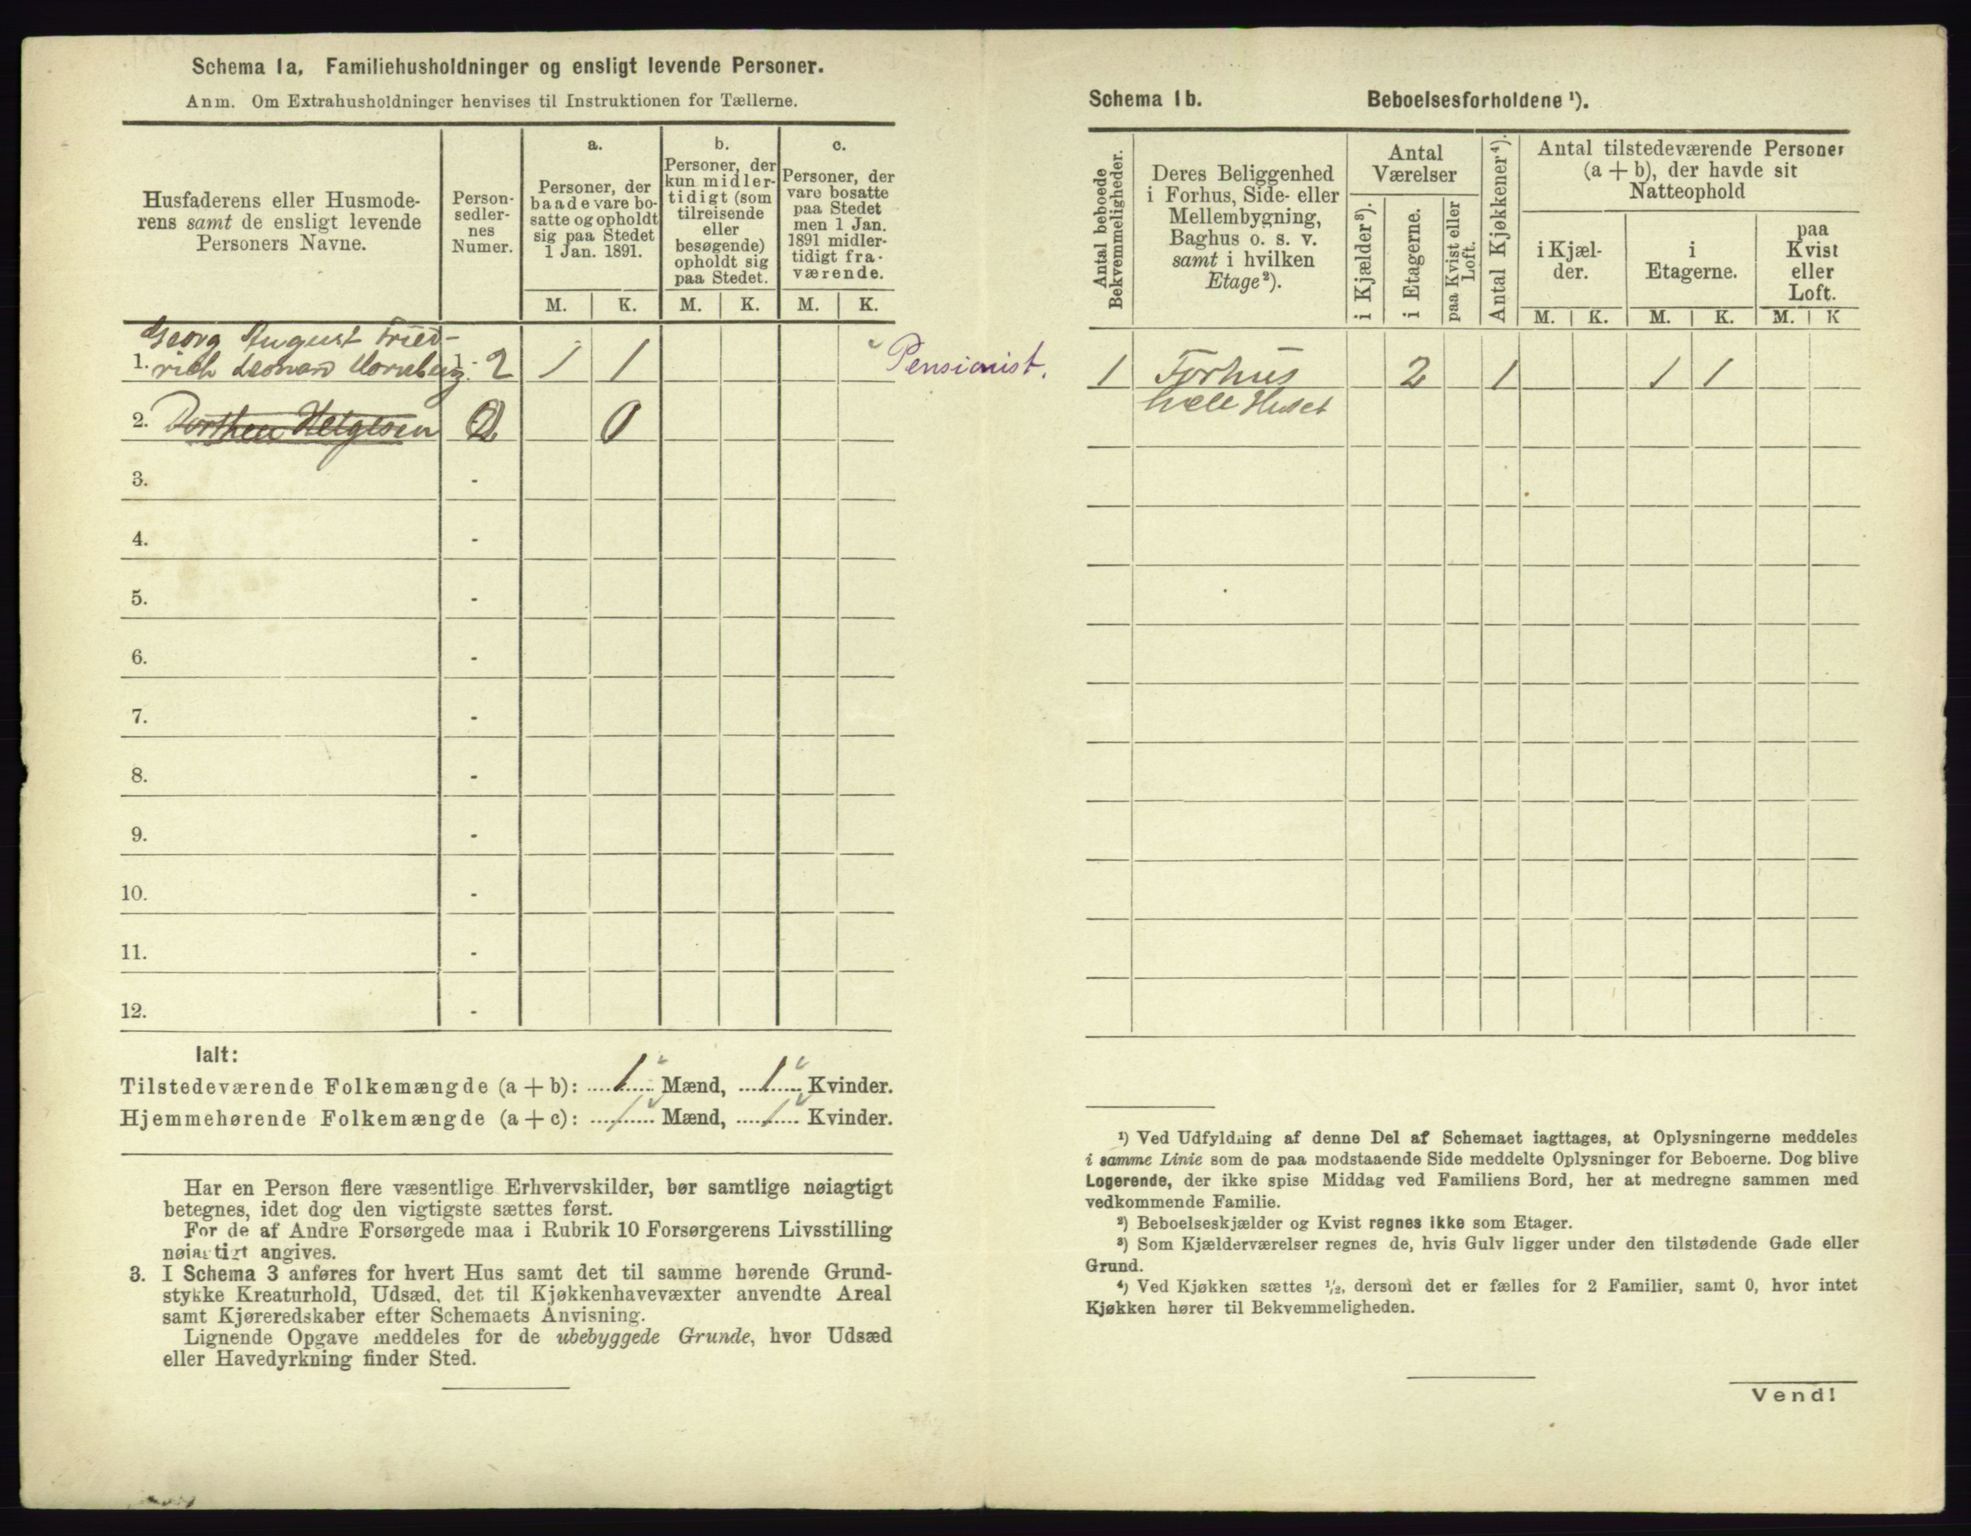 Schema 1a. Familiehusholdninger og ensligt levende Personer.
Anm. Om Extrahusholdninger henvises til Instruktionen for Tællerne.
Husfaderens eller Husmode-
rens samt de ensligt levende
Personers Navne.
Person-
sedler-
nes
Numer.
a.
Personer, der
baade vare bo-
satte og opholdt
sig paa Stedet
1 Jan. 1891.
b.
Personer, der
kun midler-
tidigt (som
tilreisende
eller
besøgende)
opholdt sig
paa Stedet.
c.
Personer, der
vare bosatte
paa Stedet
men 1 Jan.
1891 midler-
tidigt fra-
værende.
M. K. M. K. M. K.
Georg August Fried-
1. rich 1-2 1 1 Pensionist.
2. Dorthea Helgesen 2 0
3. -
4. -
5. -
6. -
7. -
8. -
9. -
10. -
11. -
12. -
Ialt:
Tilstedeværende Folkemængde (a + b): 1 Mænd, 1 Kvinder.
Hjemmehørende Folkemængde (a + c): 1 Mænd, 1 Kvinder.
Har en Person flere væsentlige Erhvervskilder, bør samtlige nøiagtigt
betegnes, idet dog den vigtigste sættes først.
For de af Andre Forsørgede maa i Rubrik 10 Forsørgerens Livsstilling
nøiagtigt angives.
3. I Schema 3 anføres for hvert Hus samt det til samme hørende Grund-
stykke Kreaturhold, Udsæd, det til Kjøkkenhavevæxter anvendte Areal
samt Kjøreredskaber efter Schemaets Anvisning.
Lignende Opgave meddeles for de ubebyggede Grunde, hvor Udsæd
eller Havedyrkning finder Sted.
Schema 1b. Beboelsesforholdene ¹).
Antal beboede
Bekvemmeligheder.
Deres Beliggenhed
i Forhus, Side- eller
Mellembygning,
Baghus o. s. v.
samt i hvilken
Etage²).
Antal
Værelser
i Kjælder³).
i Etagerne.
paa Kvist eller
Loft.
Antal Kjøkkener⁴).
Antal tilstedeværende Personer
(a + b), der havde sit
Natteophold
i Kjæl-
der.
i
Etagerne.
paa
Kvist
eller
Loft.
M. K. M. K. M. K
1 Forhus 2 1 1 1
hele Huset
¹) Ved Udfyldning af denne Del af Schemaet iagttages, at Oplysningerne meddeles
i samme Linie som de paa modstaaende Side meddelte Oplysninger for Beboerne. Dog blive
Logerende, der ikke spise Middag ved Familiens Bord, her at medregne sammen med
vedkommende Familie.
²) Beboelseskjælder og Kvist regnes ikke som Etager.
³) Som Kjælderværelser regnes de, hvis Gulv ligger under den tilstødende Gade eller
Grund.
⁴) Ved Kjøkken sættes ½, dersom det er fælles for 2 Familier, samt 0, hvor intet
Kjøkken hører til Bekvemmeligheden.
Vend!